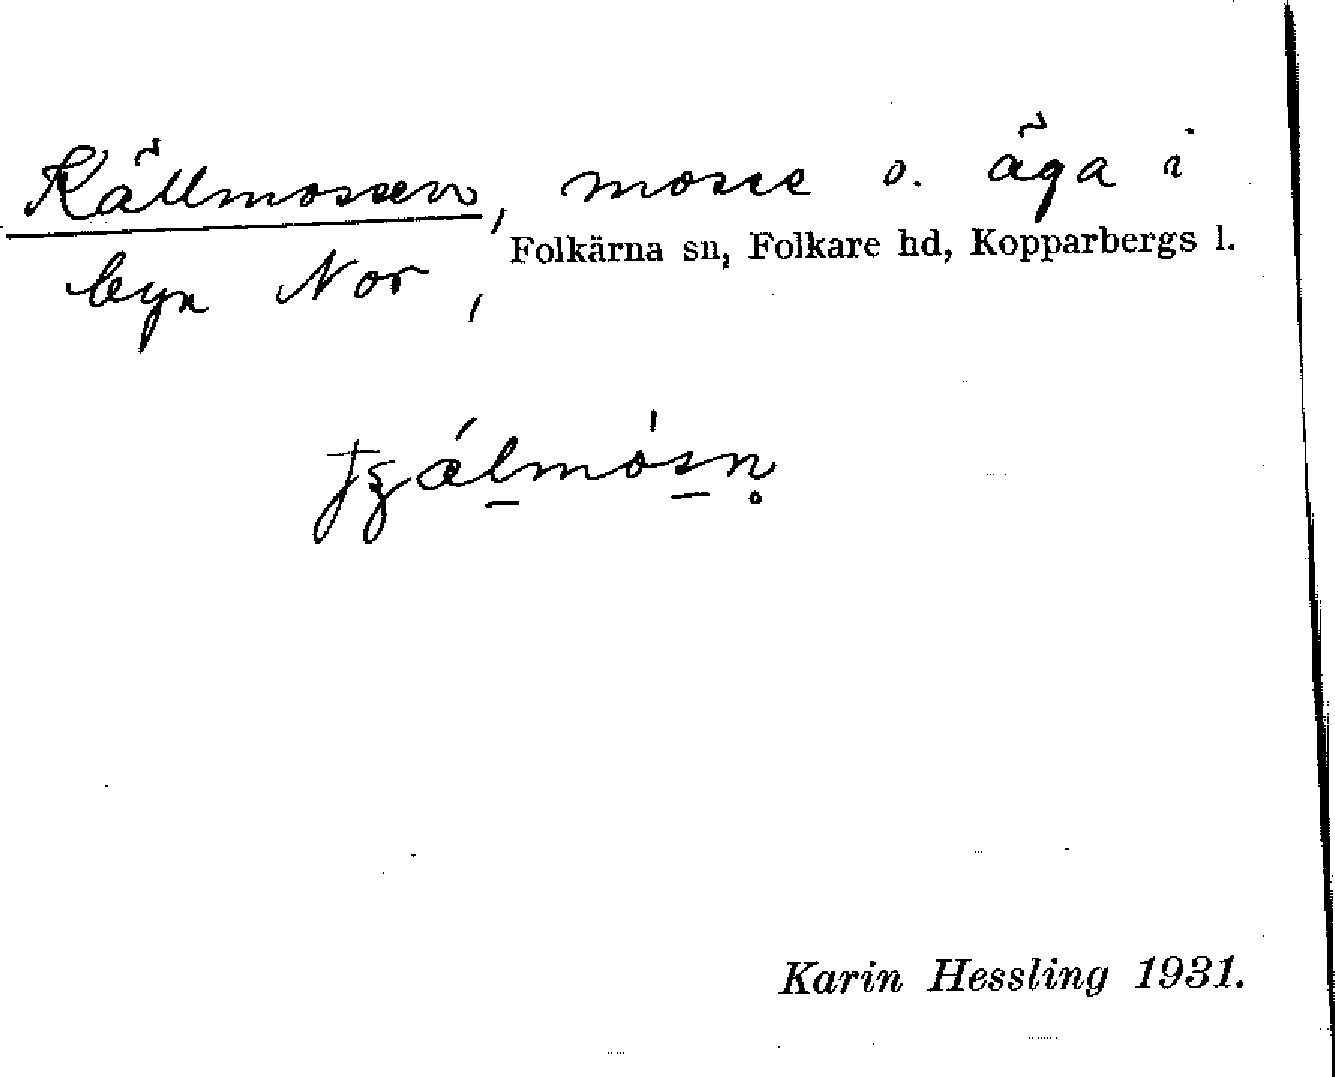 Källmossen, mosse o. äga i
Folkärna sn, Folkare hd, Kopparbergs l.
byn Nor,
Karin Hessling 1931.